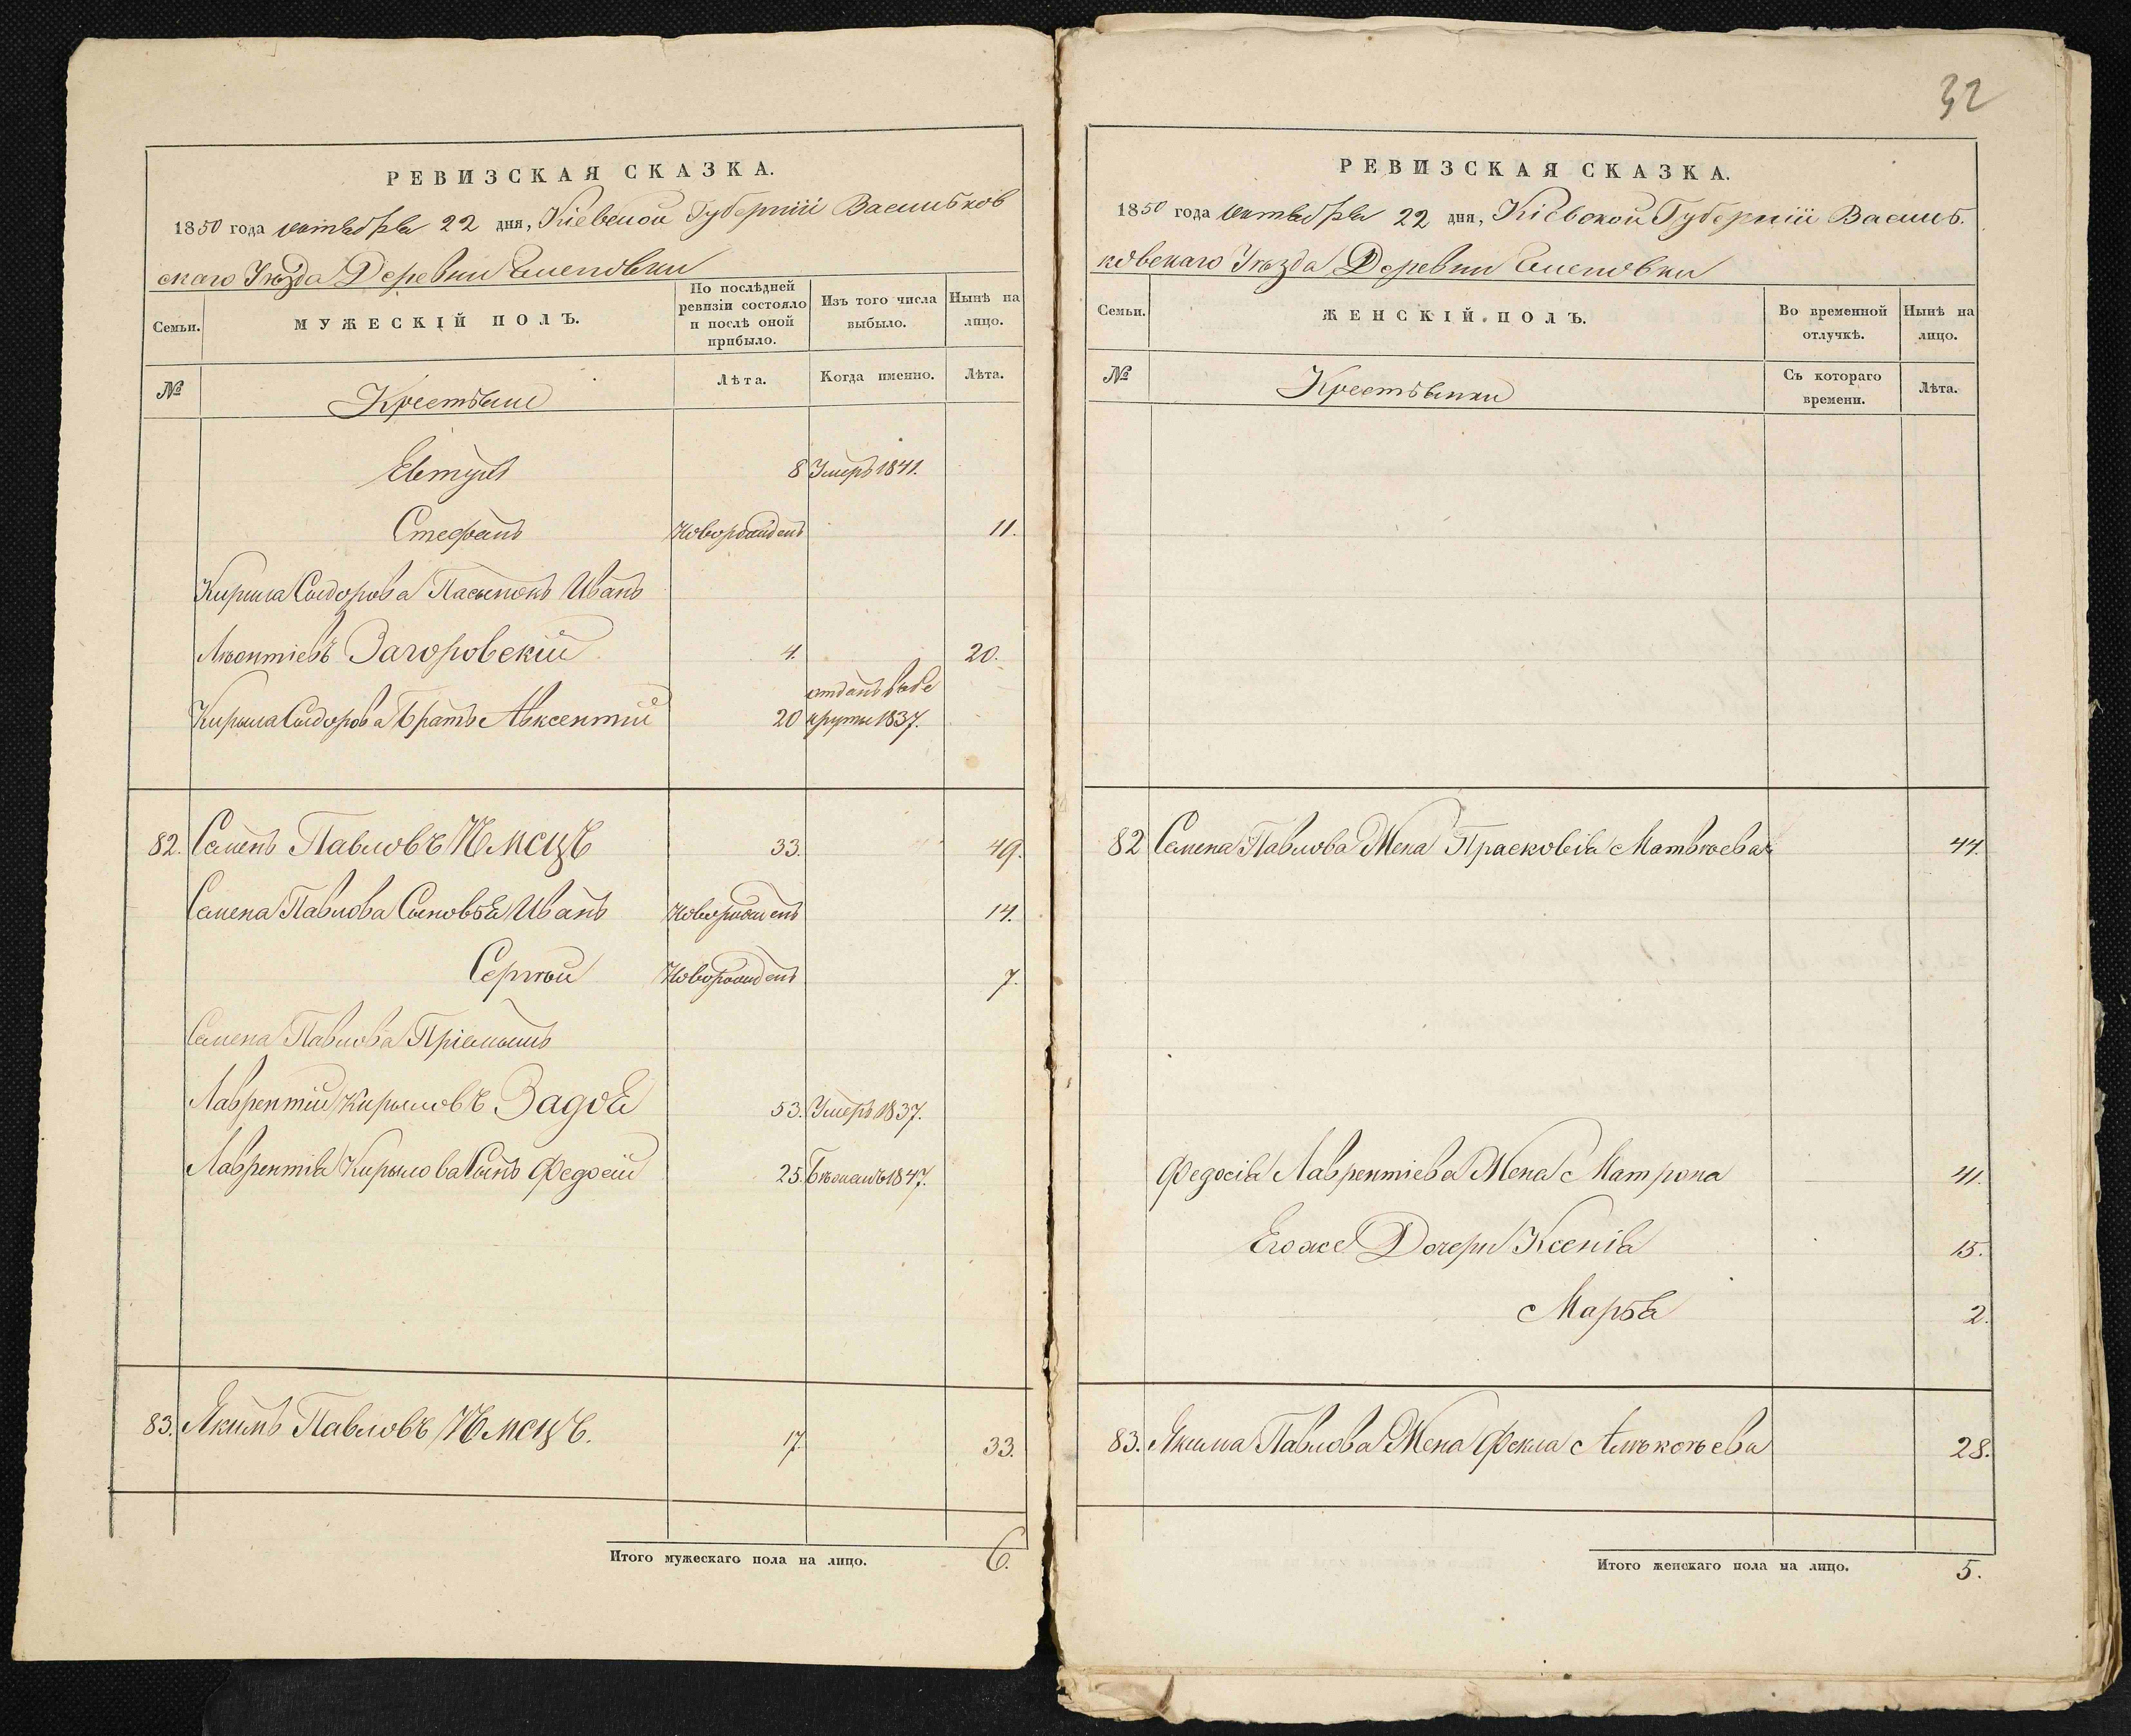 РЕВИЗСКАЯ СКАЗКА.
1850 года октября 22 дня, Кіевской Губерніи Васильков
скаго Уѣзда Деревни
Семьи.
МУЖЕСКІЙ ПОЛЪ.
По послѣдней ревизіи состояло и послѣ оной прибыло.
Изъ того числа выбыло.
Нынѣ на лицо.
№
Крестьяне
Лѣта.
Когда именно.
Лѣта.
Евтухъ 8 Умеръ 1841.
Стефанъ Новорожденъ 11.
Кирила Сыдорова Пасынокъ Иванъ
Леонтіевъ Загоровскій 4. 20.
отданъ въ Ре
Кирыла Сыдорова Братъ Авксентій 20 круты 1837.
82. Семенъ Павловъ Нѣмецъ 33. 49.
Семена Павлова Сыновья Иванъ Новорожденъ 14.
Сергѣй Новорожденъ 7.
Семена Павлова Пріемышъ
Лаврентій Кирыловъ Задоя 53. Умеръ 1837.
Лаврентія Кирылова Сынъ Федосій 25. Бѣжалъ 1847.
83. Якимъ Павловъ Нѣмецъ. 17. 33.
Итого мужескаго пола на лицо. 6.
32
РЕВИЗСКАЯ СКАЗКА.
1850 года октября 22 дня, Кіевской Губерніи Василь.
ковскаго Уѣзда Деревни
Семьи.
ЖЕНСКІЙ ПОЛЪ.
Во временной отлучкѣ.
Нынѣ на лицо.
№
Крестьянки
Съ котораго времени.
Лѣта.
82 Семена Павлова Жена Прасковія Матвѣева 44.
Федосія Лаврентіева Жена Матрона 41.
Егоже Дочери Ксенія 15.
Марья 2.
83. Якима Павлова Жена Фекла 28.
Итого женскаго пола на лицо. 5.